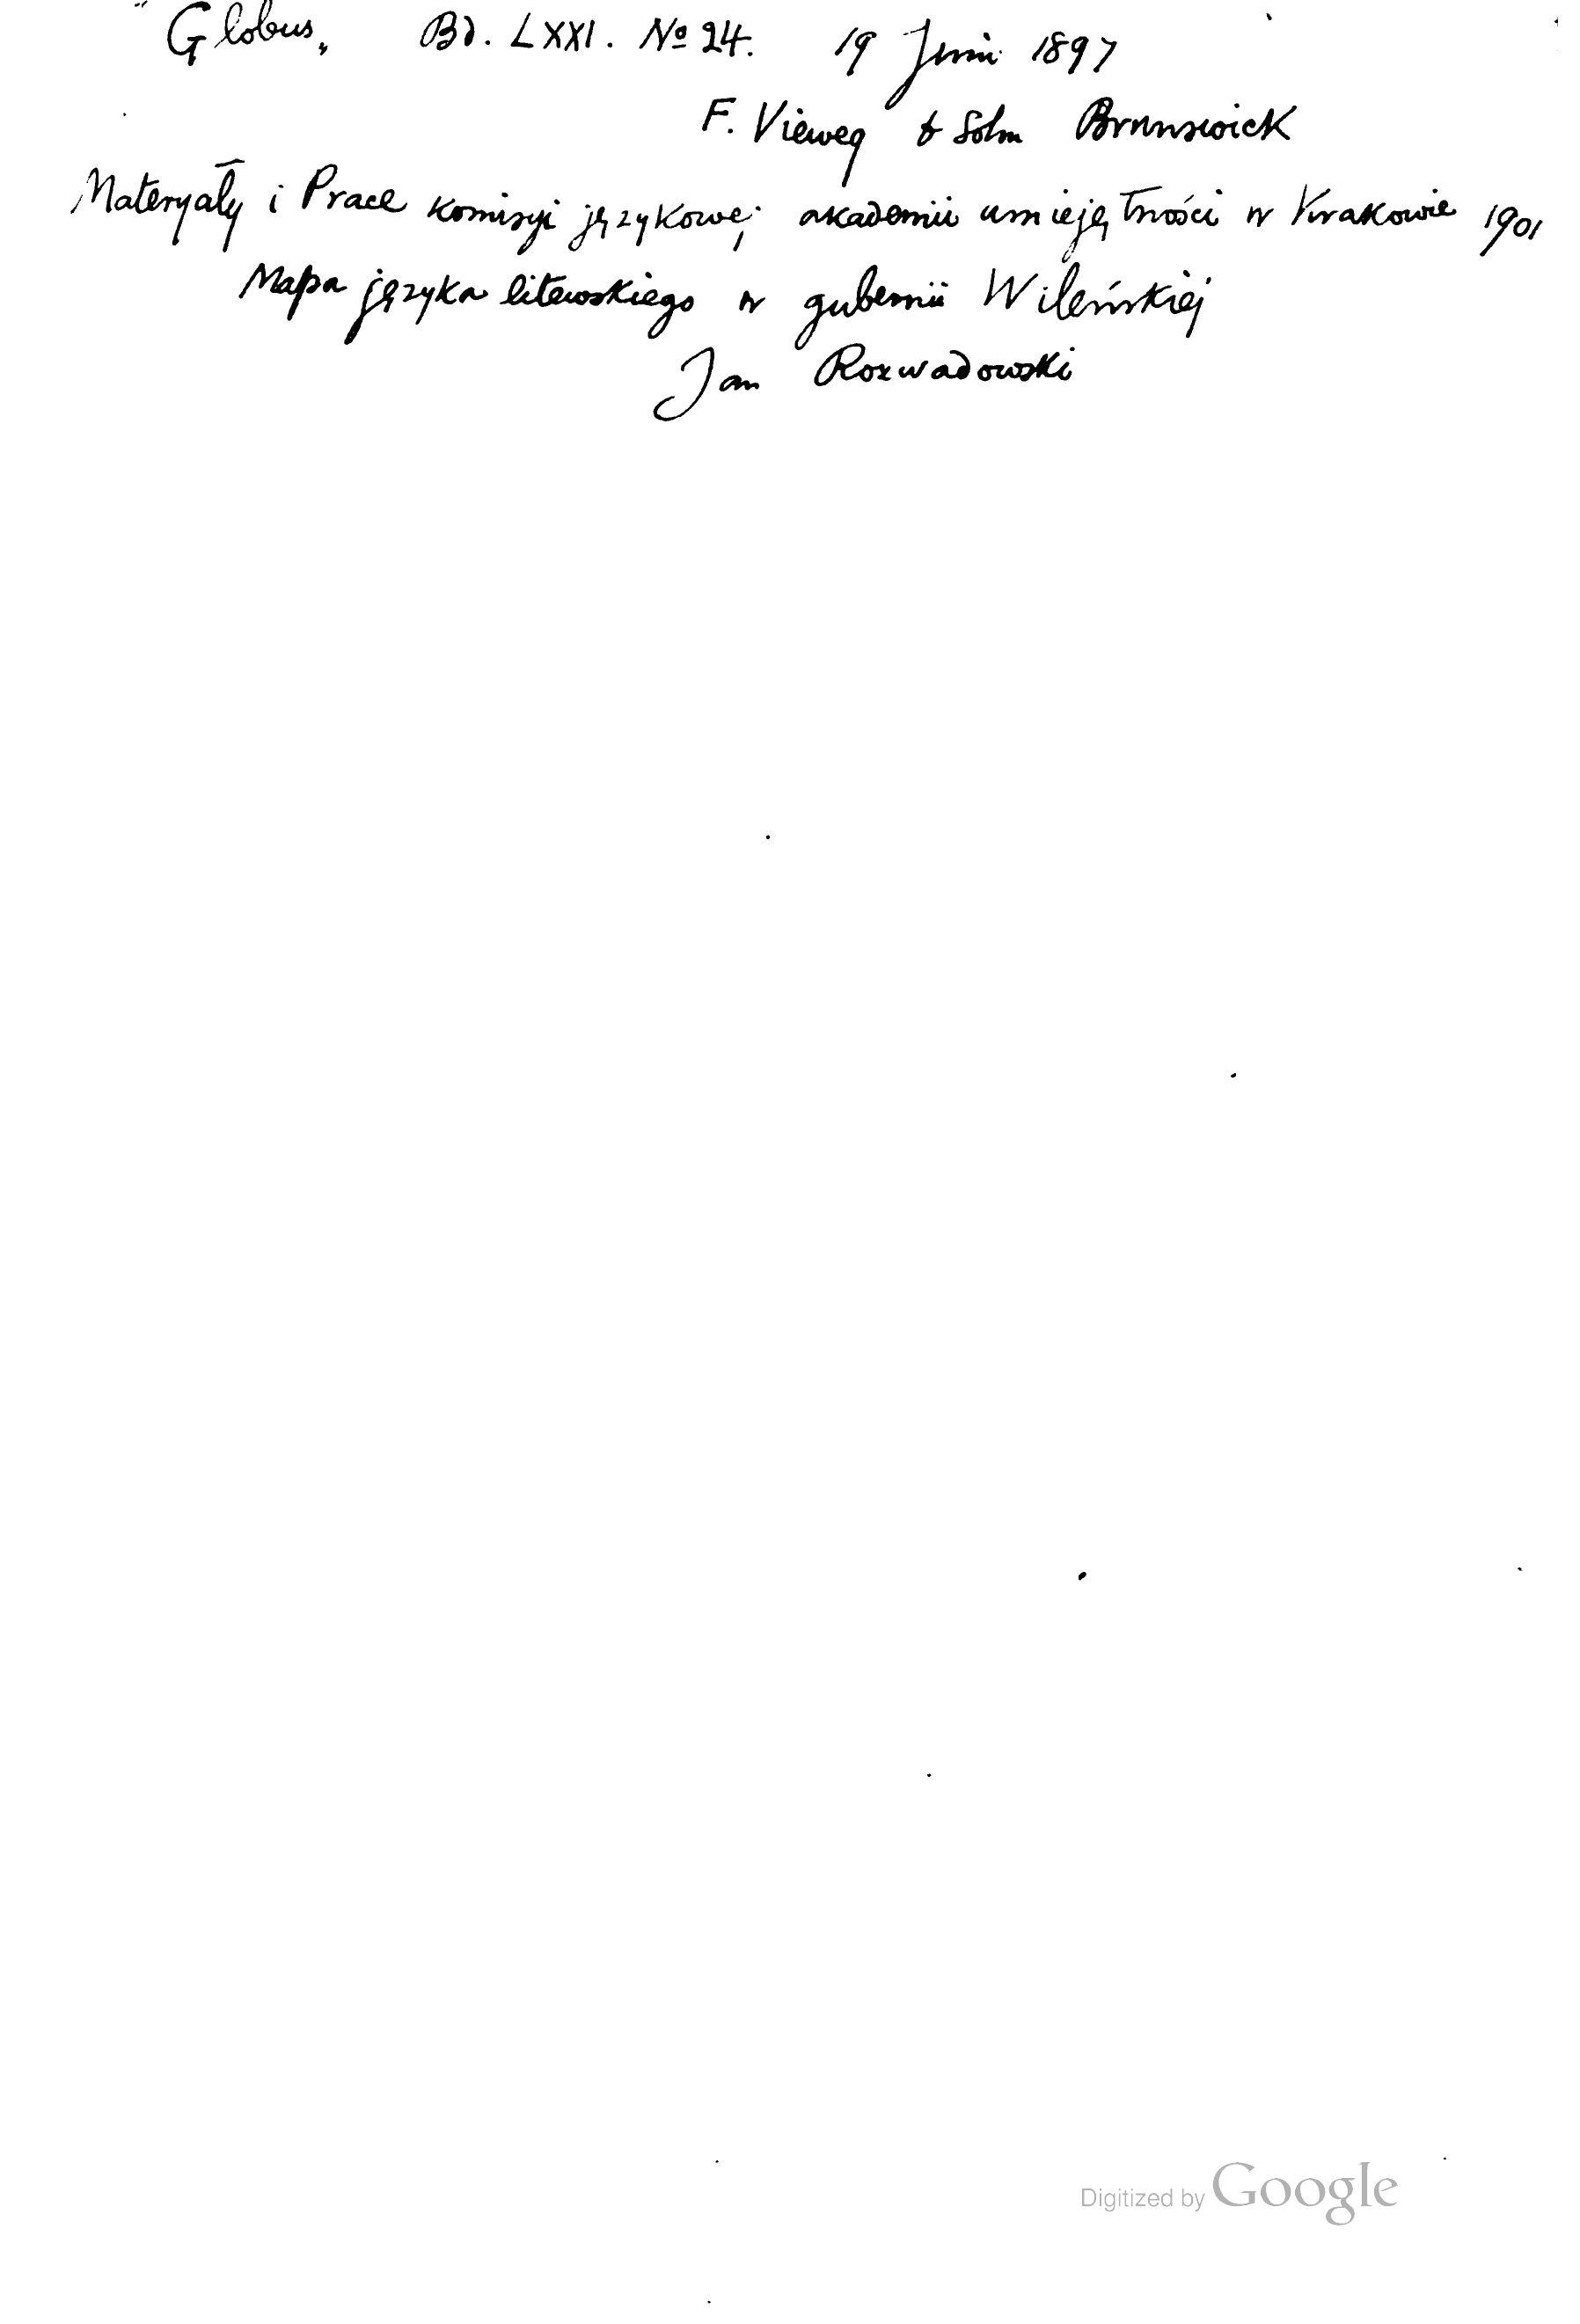 "Globus„ Bd. LXXI. Nº 24. 19 Juni 1897
F. Vieweg & Sohn Brunswick
Materyały i Prace komisyi językowej akademii umiejętności w Krakowie 1901
Mapa języka litewskiego w gubernii Wileńskiej
Jan Rozwadowski
Digitized by Google